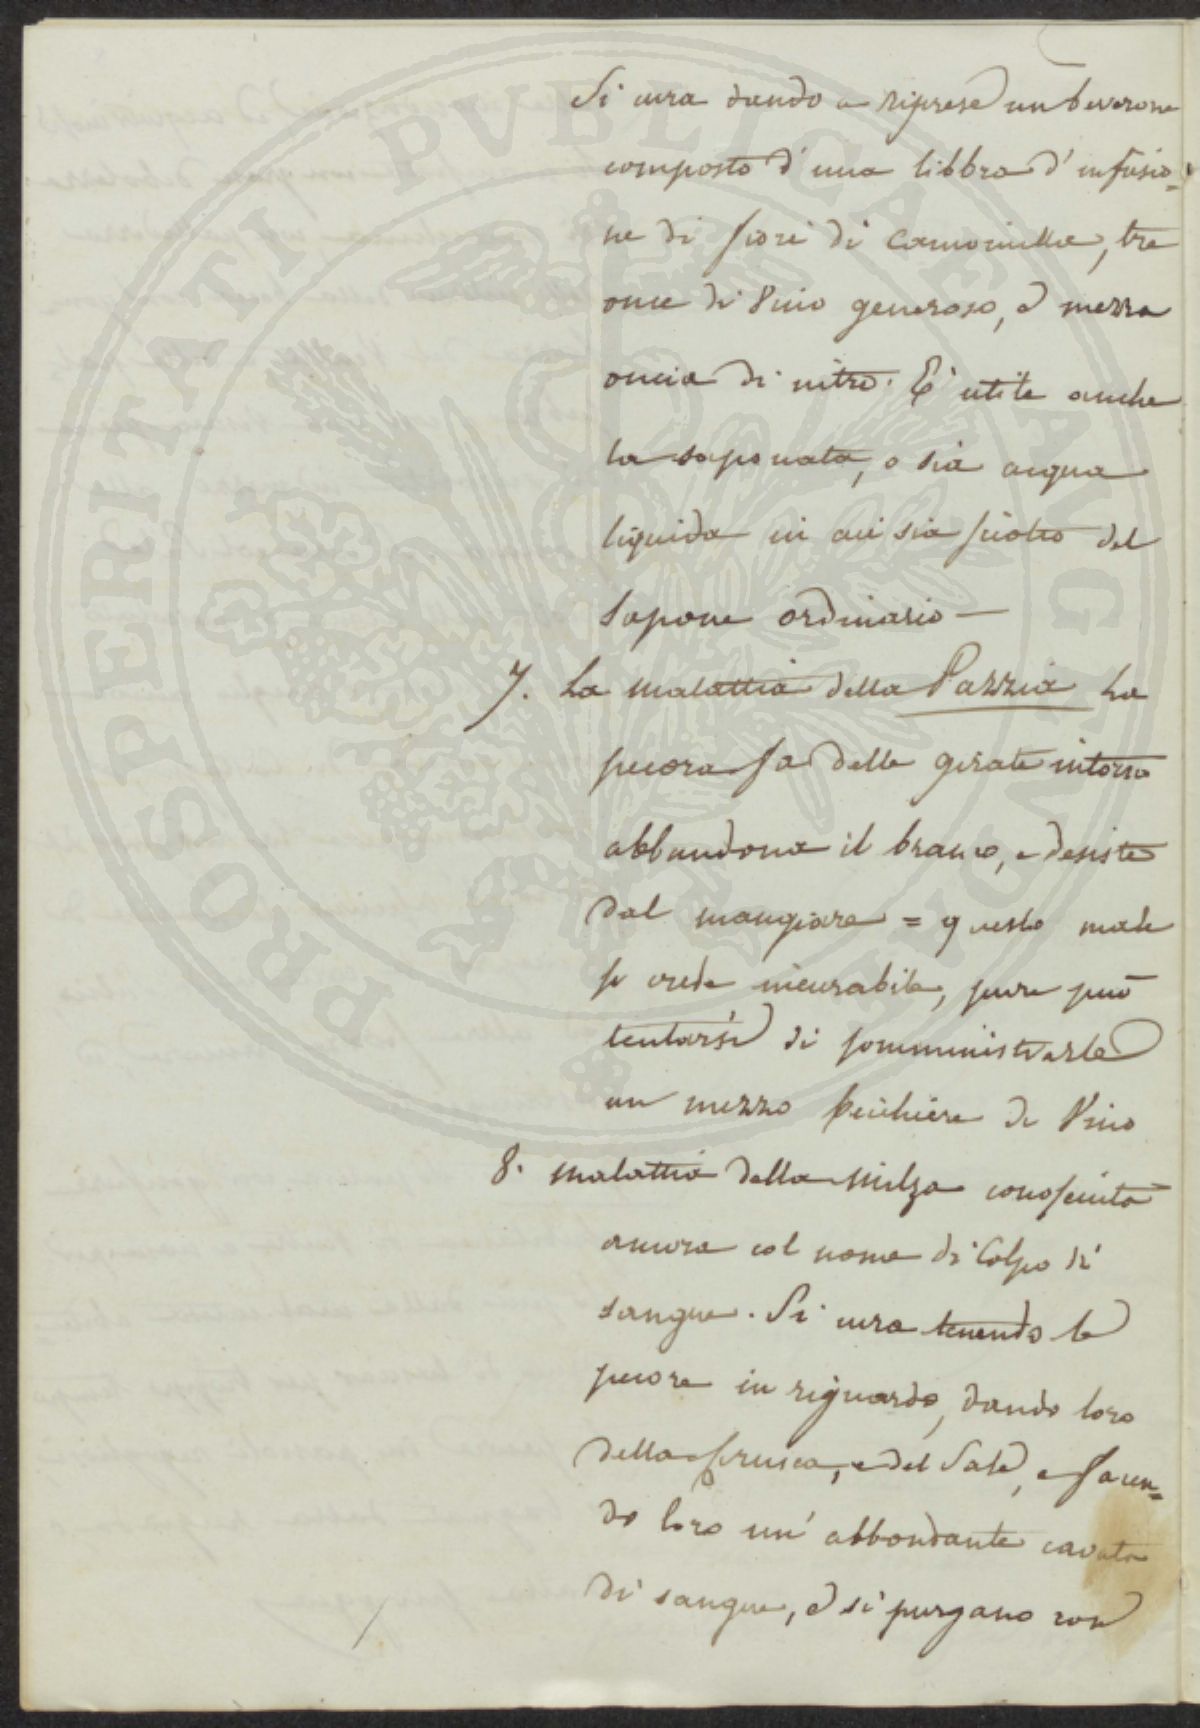 Si cura dando a riprese un beverone
composto d'una libbra d'infusio=
ne di fiori di camomilla, tre
once di Vino generoso, e mezza
oncia di nitro. E' utile anche
la saponata, o sia acqua
liquida in cui sia sciolto del
sapone ordinario —
7. La malattia della Pazzia La
pecora fa delle girate intorno
abbandona il branco, e desiste
dal mangiare = questo male
si crede incurabile, pure può
tentarsi di somministrarle
un mezzo bicchiere di Vino
8. Malattia della Milza conosciuta
ancora col nome di Colpo di
sangue. Si cura tenendo le
pecore in riguardo, dando loro
della crusca, e del Sale, e facen=
do loro un' abbondante cavata
di sangue, e si purgano con
PROSPERITATI PVBLICAE AVGENDAE